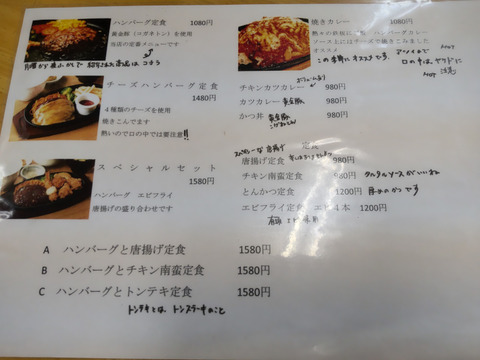 ハンバーグ定食 1080円
黄金豚（コガネトン）を使用
当店の定番メニューです
チーズハンバーグ定食
1480円
4種類のチーズを使用
焼きこんでます
熱いので口の中では要注意!!
スペシャルセット
1580円
ハンバーグ エビフライ
唐揚げの盛り合わせです
焼きカレー 980円
熱々の鉄板に ハンバーグカレー
ソースと上にはチーズで焼きこみました
オススメ
この季節にオススメです。
アツイので
口の中は、ヤケドに
注意
HOT
HOT
ボリュームあり
チキンカツカレー 980円
カツカレー 黄金豚 980円
かつ丼 黄金豚 980円
定食
唐揚げ定食 980円
チキン南蛮定食 980円 タルタルソースがいいね
とんかつ定食 1200円 厚めのかつです
エビフライ定食 エビ4本 1200円
A ハンバーグと唐揚げ定食 1580円
B ハンバーグとチキン南蛮定食 1580円
C ハンバーグとトンテキ定食 1580円
トンテキとは、トンステーキのこと